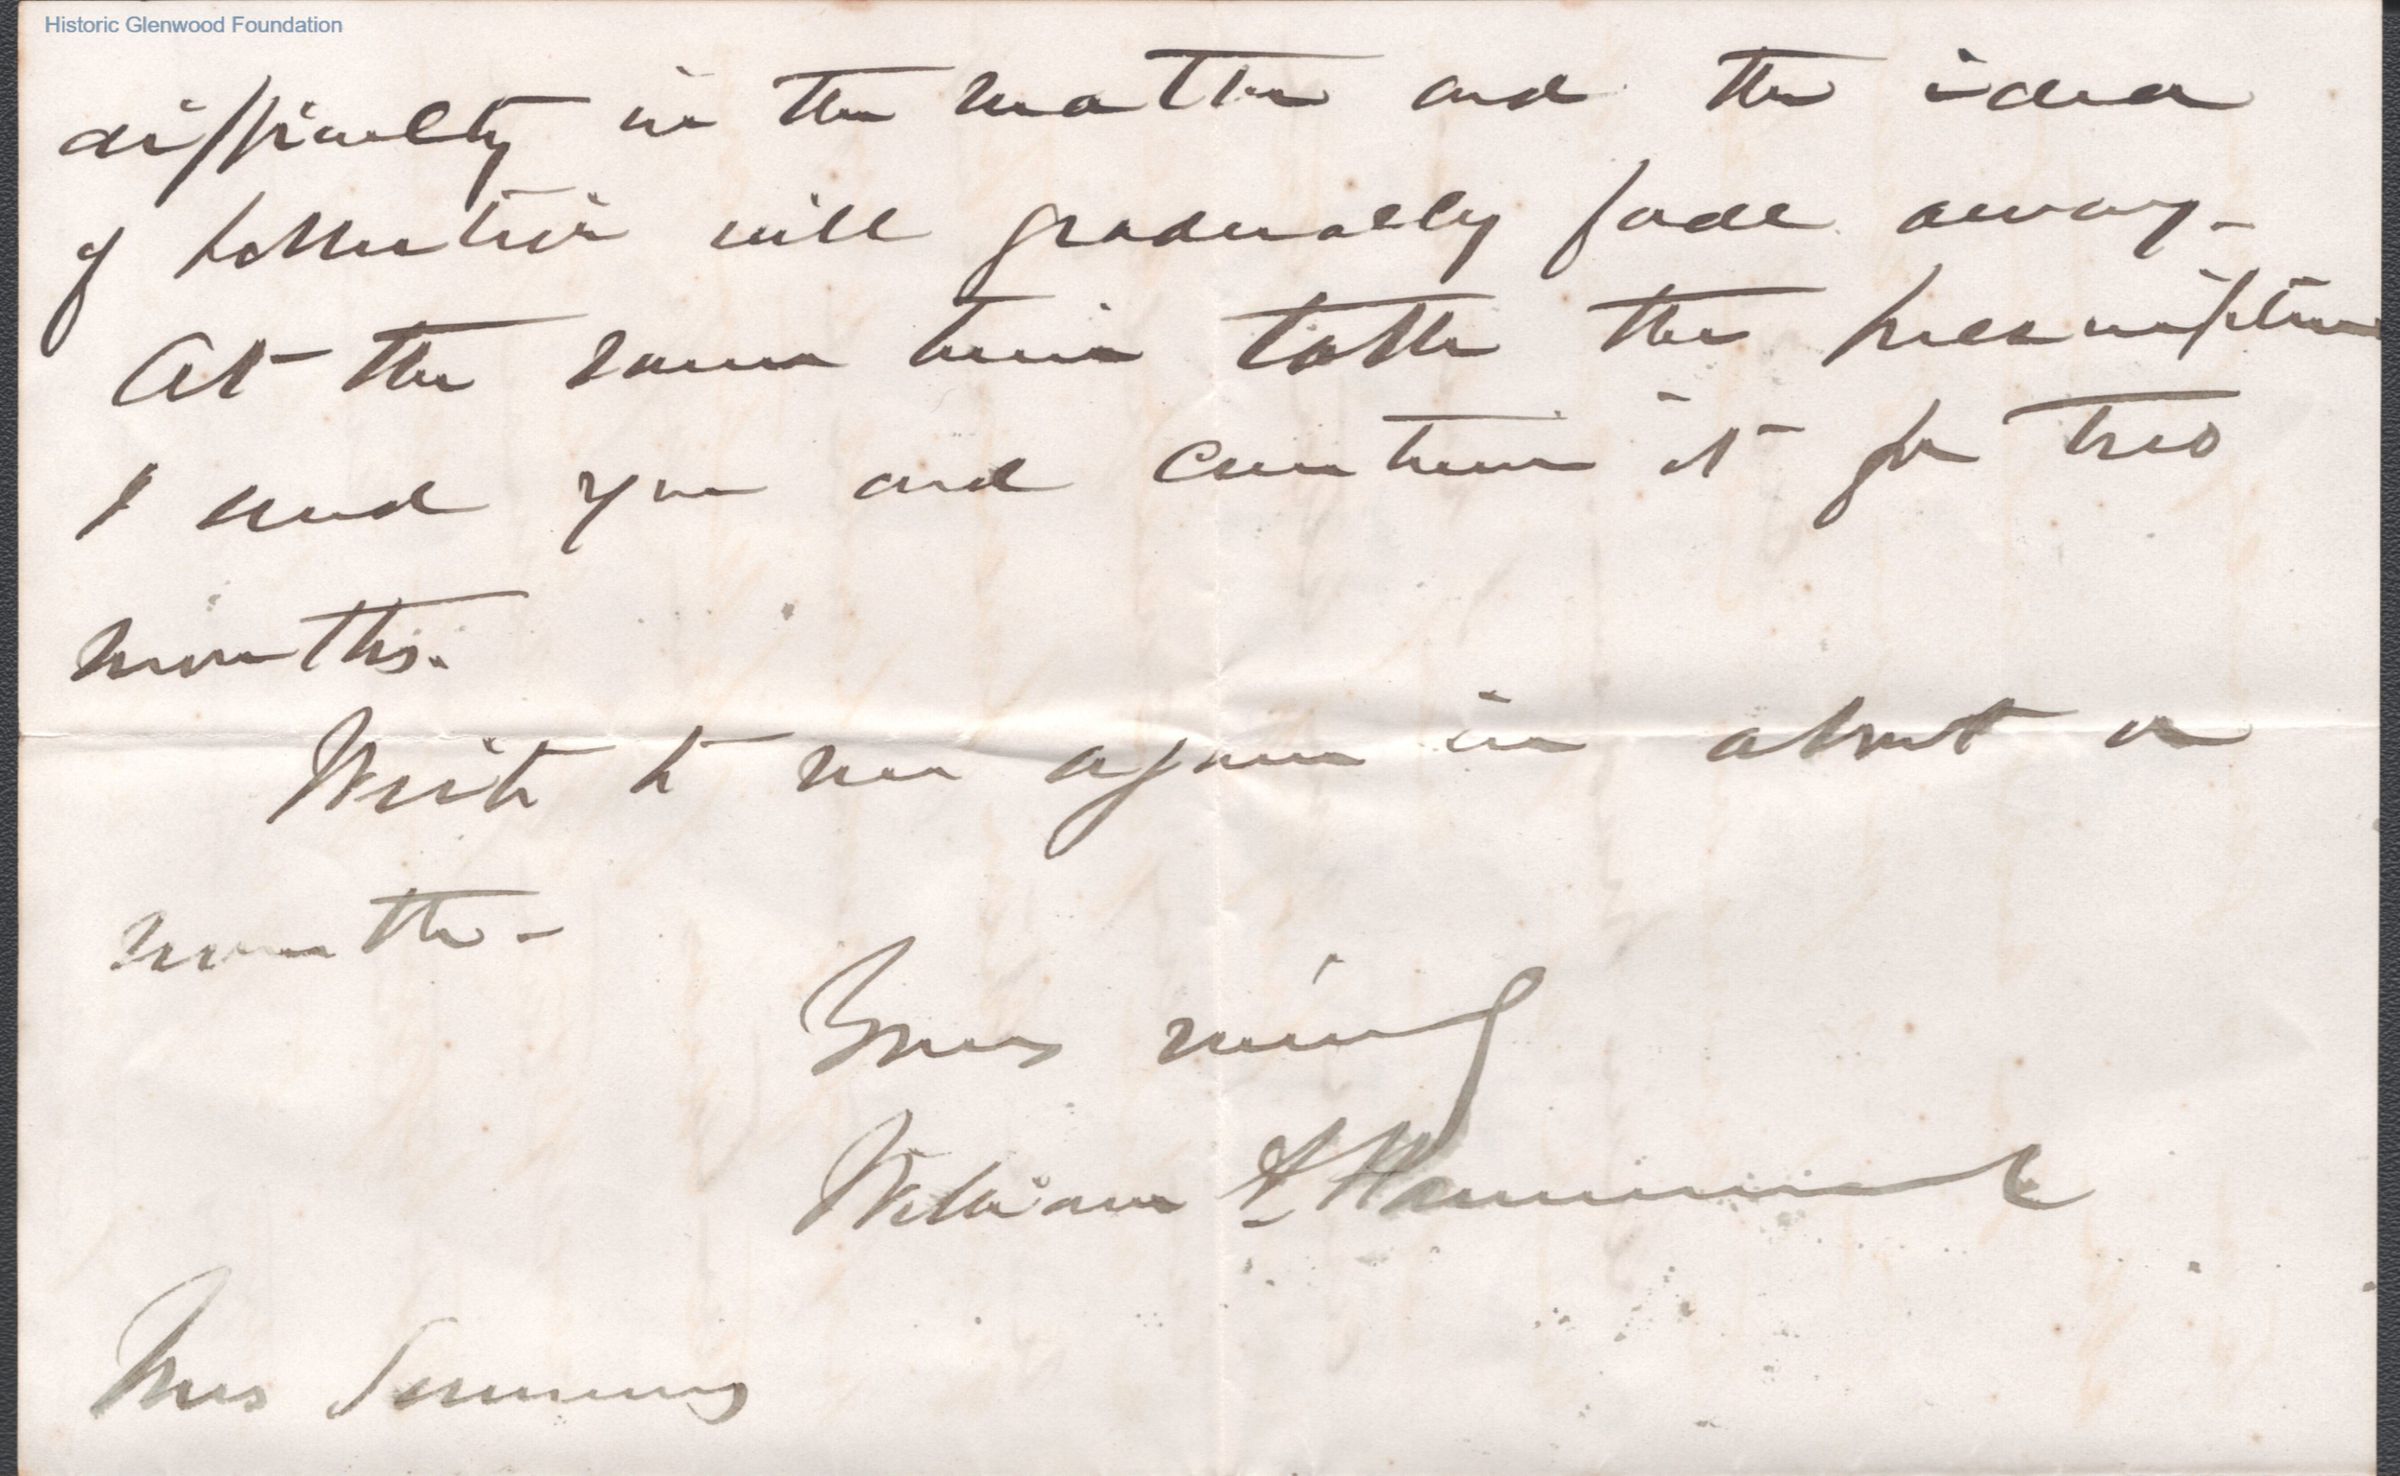 Historic Glenwood Foundation
difficulty in the matter and the idea
of pollution will gradually fade away -
At the same time take the prescription
I send you and continue it for two
months.
Write to me again in about a
month -
Yours
William A Hammond
Mrs